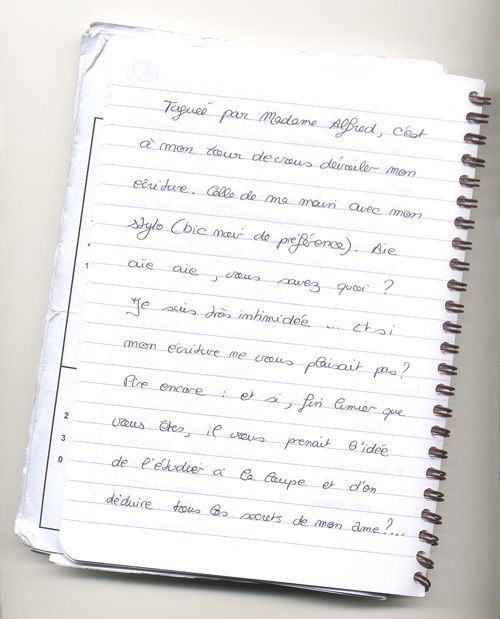 Taguée par Madame Alfred, c'est
à mon tour de vous dévoiler mon
écriture. Celle de ma main avec mon
stylo (bic noir de préférence). Aie
aïe aïe, vous savez quoi ?
Je suis très intimidée ... Et si
mon écriture ne vous plaisait pas ?
Pire encore : et si, fin limier que
vous êtes, il vous prenait l'idée
de l'étudier à la loupe et d'en
déduire tous les secrets de mon âme ?...
2
3
0